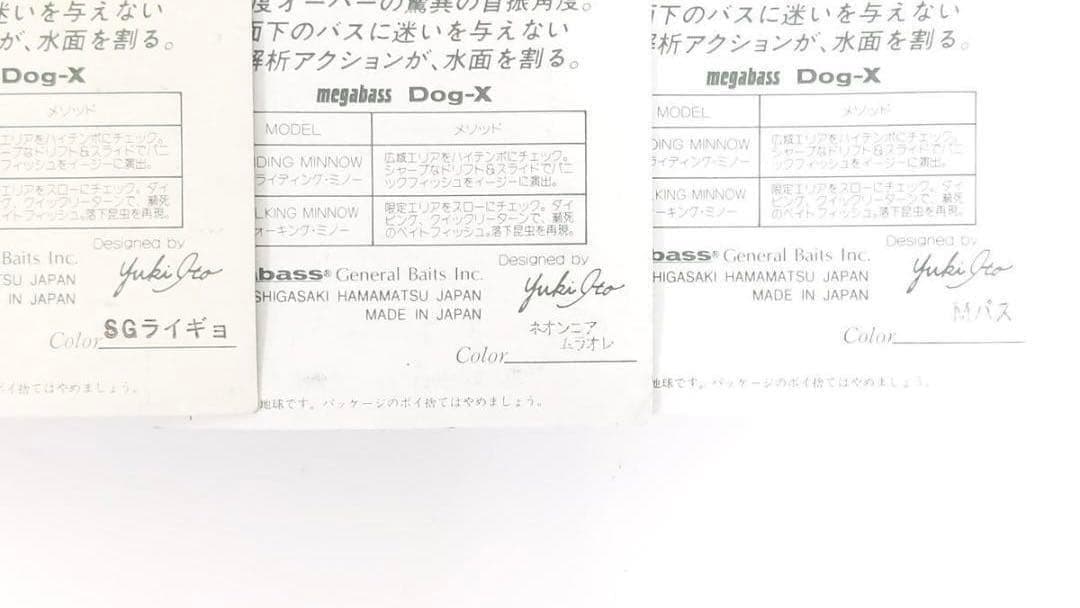 迷いを与えない
が、水面を割る。
Dog-X
メソッド
エリアをハイテンポにチェック。
ープなドリフト&スライドでパニ
フィッシュをイージーに演出。
エリアをスローにチェック。ダイ
ング、クイックリーターンで、瀕死
イトフィッシュ。落下昆虫を再現。
Designed by
Yuki Ito
Baits Inc.
TSU JAPAN
IN JAPAN
Color SGライギョ
ポイ捨てはやめましょう。
度オーバーの驚異の首振角度。
下のバスに迷いを与えない
解析アクションが、水面を割る。
megabass Dog-X
MODEL メソッド
DING MINNOW
ライディング・ミノー
広域エリアをハイテンポにチェック。
シャープなドリフト&スライドでパニ
ックフィッシュをイージーに演出。
LKING MINNOW
ォーキング・ミノー
限定エリアをスローにチェック。ダイ
ビング、クイックリーターンで、瀕死
のベイトフィッシュ。落下昆虫を再現。
Designed by
Yuki Ito
bass® General Baits Inc.
SHIGASAKI HAMAMATSU JAPAN
MADE IN JAPAN
ネオンニア
ムラオレ
Color
地球です。パッケージのポイ捨てはやめましょう。
下のバスに迷いを与えない
解析アクションが、水面を割る。
megabass Dog-X
MODEL メソッド
DING MINNOW
ライディング・ミノー
広域エリアをハイテンポにチェック。
シャープなドリフト&スライドでパニ
ックフィッシュをイージーに演出。
LKING MINNOW
ォーキング・ミノー
限定エリアをスローにチェック。ダイ
ビング、クイックリーターンで、瀕死
のベイトフィッシュ。落下昆虫を再現。
Designed by
Yuki Ito
bass® General Baits Inc.
SHIGASAKI HAMAMATSU JAPAN
MADE IN JAPAN
Mバス
Color
地球です。パッケージのポイ捨てはやめましょう。